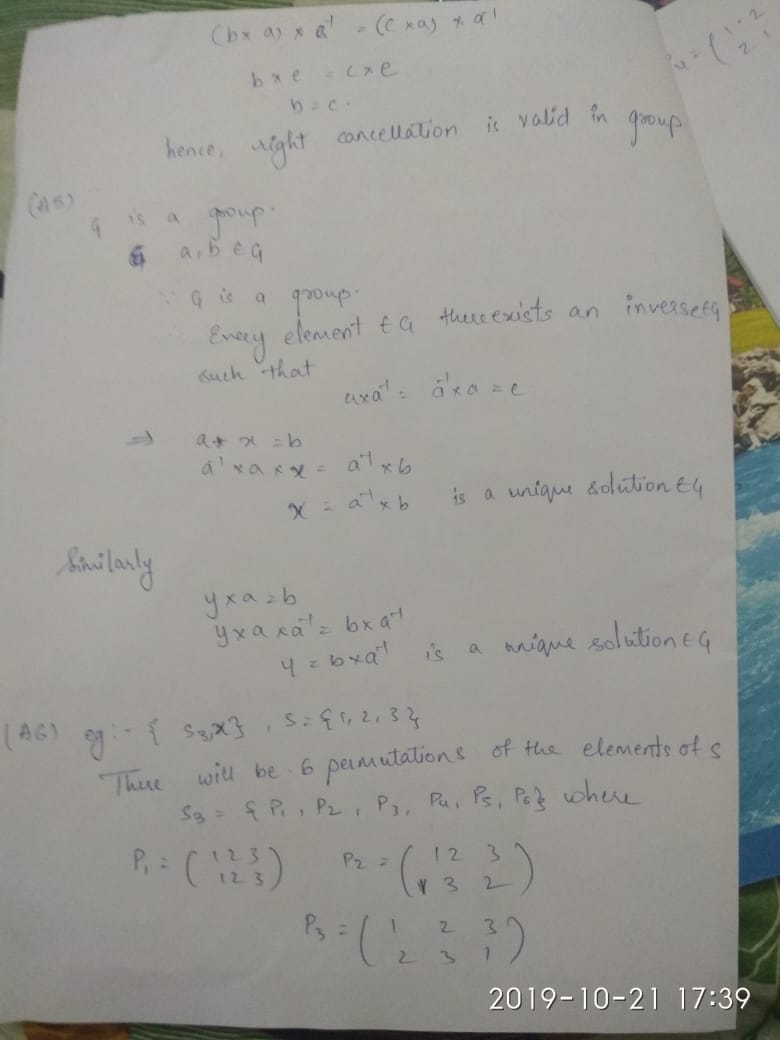 (b × a) × a⁻¹ = (c × a) × a⁻¹
b × e = c × e
b = c.
hence, right cancellation is valid in group
(A5)
G is a group.
a, b ∈ G
∵ G is a group.
Every element ∈ G there exists an inverse ∈ G
such that
a × a⁻¹ = a⁻¹ × a = e
⇒ a * x = b
a⁻¹ × a × x = a⁻¹ × b
x = a⁻¹ × b is a unique solution ∈ G
Similarly
y × a = b
y × a × a⁻¹ = b × a⁻¹
y = b × a⁻¹ is a unique solution ∈ G
(A6) eg :- { S₃, × } , S = {1, 2, 3}
There will be 6 permutations of the elements of S
S₃ = { P₁, P₂, P₃, P₄, P₅, P₆} where
P₁ = ( 1 2 3 P₂ = ( 1 2 3
1 2 3 ) 1 3 2 )
P₃ = ( 1 2 3
2 3 1 )
2019-10-21 17:39